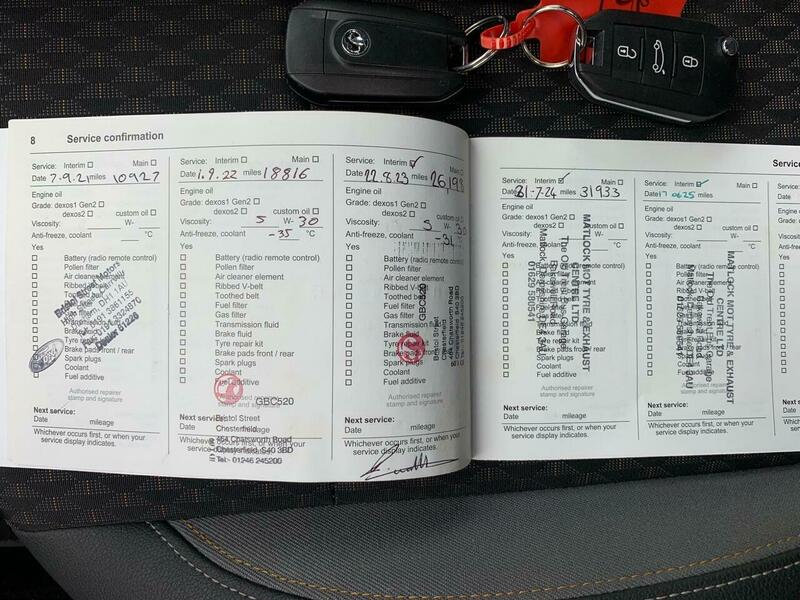 8 Service confirmation
Service: Interim Main
Date 7.9.21 miles 10927
Engine oil
Grade: dexos1 Gen2
dexos2 custom oil
Viscosity: W-
Anti-freeze, coolant °C
Yes
Battery (radio remote control)
Pollen filter
Air cleaner element
Ribbed V-belt
Toothed belt
Fuel filter
Gas filter
Transmission fluid
Brake fluid
Tyre repair kit
Brake pads front / rear
Spark plugs
Coolant
Fuel additive
Authorised repairer
stamp and signature
Next service:
Date mileage
Whichever occurs first, or when your
service display indicates.
Service: Interim Main
Date 1.9.22 miles 18816
Engine oil
Grade: dexos1 Gen2
dexos2 custom oil
Viscosity: 5 W- 30
Anti-freeze, coolant -35 °C
Yes
Battery (radio remote control)
Pollen filter
Air cleaner element
Ribbed V-belt
Toothed belt
Fuel filter
Gas filter
Transmission fluid
Brake fluid
Tyre repair kit
Brake pads front / rear
Spark plugs
Coolant
Fuel additive
Authorised repairer
stamp and signature
GBC520
Bristol Street
Chesterfield
464 Chatsworth Road
Chesterfield S40 3BD
Tel: 01246 245200
Next service:
Date mileage
Whichever occurs first, or when your
service display indicates.
Service: Interim Main
Date 22.8.23 miles 26,198
Engine oil
Grade: dexos1 Gen2
dexos2 custom oil
Viscosity: 5 W- 30
Anti-freeze, coolant -34
Yes
Battery (radio remote control)
Pollen filter
Air cleaner element
Ribbed V-belt
Toothed belt
Fuel filter
Gas filter
Transmission fluid
Brake fluid
Tyre
Brake pads
Spark plugs
Coolant
Fuel additive
GBC520
Bristol Street
Chesterfield
464 Chatsworth Road
Chesterfield S40 3BD
Authorised repairer
stamp and signature
Next service:
Date mileage
Whichever occurs first, or when your
service display indicates.
Service: Interim Main
Date 31-7.24 miles 31933
Engine oil
Grade: dexos1 Gen2
dexos2 custom oil
Viscosity: W-
Anti-freeze, coolant °C
Yes
MATLOCK MOT TYRE & EXHAUST
CENTRE LTD
01629 580541
Spark plugs
Coolant
Fuel additive
Authorised repairer
stamp and signature
Next service:
Date mileage
Whichever occurs first, or when your
service display indicates.
Service: Interim Main
Date 17 06 25 miles
Engine oil
Grade: dexos1 Gen2
dexos2 custom oil
Viscosity: W-
Anti-freeze, coolant °C
Yes
MATLOCK MOT TYRE & EXHAUST
CENTRE LTD
Spark plugs
Coolant
Fuel additive
Authorised repairer
stamp and signature
Next service:
Date mileage
Whichever occurs first, or when your
service display indicates.